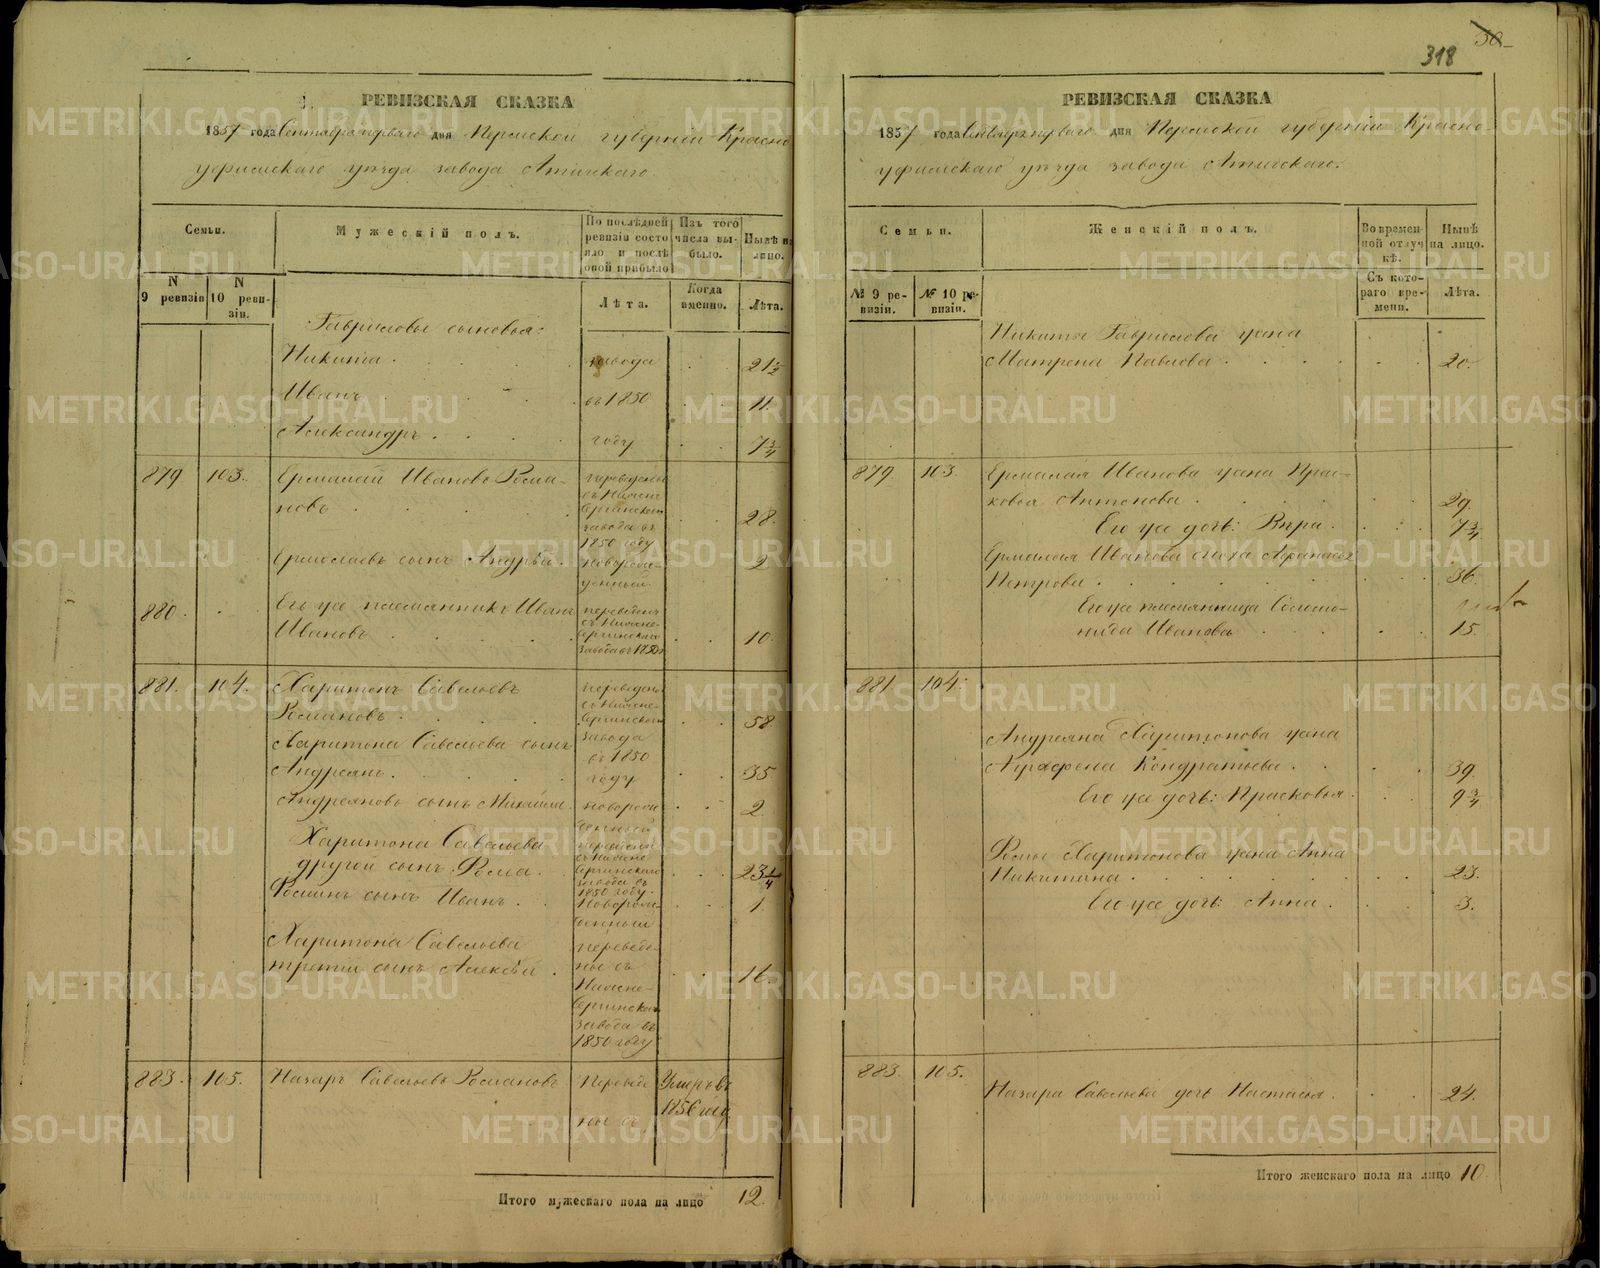 318
30
РЕВИЗСКАЯ СКАЗКА
1857 года Сентября перваго дня Пермской губерніи Красно
уфимскаго уѣзда завода Атигскаго.
Семьи.
Мужескій полъ.
По послѣдней ревизіи состояло и послѣ оной прибыло
Изъ того числа выбыло.
Нынѣ на лицо.
N 9 ревизіи
N 10 ревизіи.
Лѣта.
Когда именно.
Лѣта.
Гавриловы сыновья:
Никита . завода 21½
Иванъ въ 1850 11.
Александръ . году 7¾
879 103. Ермолай Ивановъ Рома-
новъ . переведены съ Нижне Сергинскаго завода въ 1850 году 28.
сынъ Андрей. новорожденный 2
880. Его же племянникъ Иванъ
Ивановъ переведенъ съ Нижне-Сергинскаго завода въ 1850 10.
881. 104. Харитонъ Савельевъ
Романовъ . переведены съ Нижне-Сергинскаго 58
Харитона Савельева сынъ завода въ 1850
Андреянъ. году 35
Андреяновъ сынъ Михайла. новорожденный 2
Харитона Савельева
другой сынъ: Рома. переведенъ съ Нижне Сергинскаго завода въ 1850 году. 23¼
Романъ сынъ Иванъ . Новорожденный 1
Харитона Савельева
третій сынъ Алексѣй . переведенные съ Нижне-Сергинскаго завода въ 1850 году 16.
883. 105. Назаръ Савельевъ Романовъ Переведенные съ Умеръ въ 1856 году
Итого мужескаго пола на лицо 12.
РЕВИЗСКАЯ СКАЗКА
1857 года Сентября перваго дня Пермской губерніи Красно-
уфимскаго уѣзда завода Атигскаго.
Семьи.
Женскій полъ.
Во временной отлучкѣ.
Нынѣ на лицо.
№ 9 ревизіи.
№ 10 ревизіи.
Съ котораго времени.
Лѣта.
Никиты Гаврилова жена
Матрена Павлова . 20.
879. 103 Ермолая Иванова жена Прас-
ковья Антонова . 29.
Его же дочь: Вѣра . 7¾
Ермолая Иванова сноха
Петрова . 36.
Его же племянница Соломо-
нида Иванова 15.
881 104.
Андреяна Харитонова жена
Аграфена Кондратьева . 39.
Его же дочь: Прасковья. 9¾
Ромы Харитонова жена Анна
Никитина . 23.
Его же дочь: Анна . 3.
883. 105.
Назара Савельева дочь Настасья. 24.
Итого женскаго пола на лицо 10
METRIKI.GASO-URAL.RU